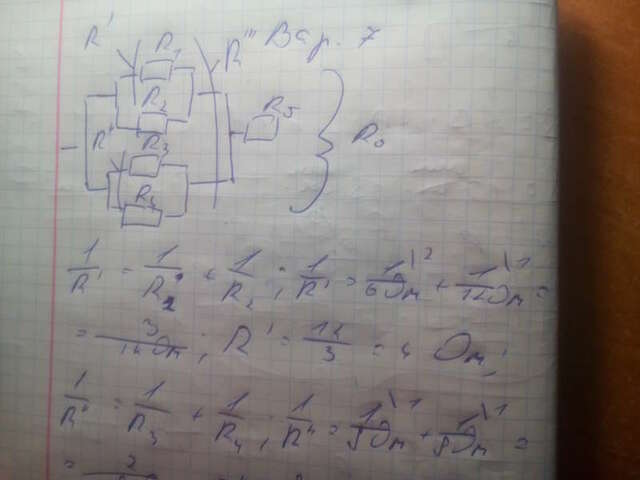 R' R₁ R''' Вар. 7
R₂ R₅
R'' R₃ } R₀
R₄
1/R' = 1/R₁ + 1/R₂ ; 1/R' = 1\2/6Ом + 1\1/12Ом =
= 3/12Ом ; R' = 12/3 = 4 Ом ;
1/R'' = 1/R₃ + 1/R₄ ; 1/R'' = 1\1/8Ом + 1\1/8Ом =
= 2